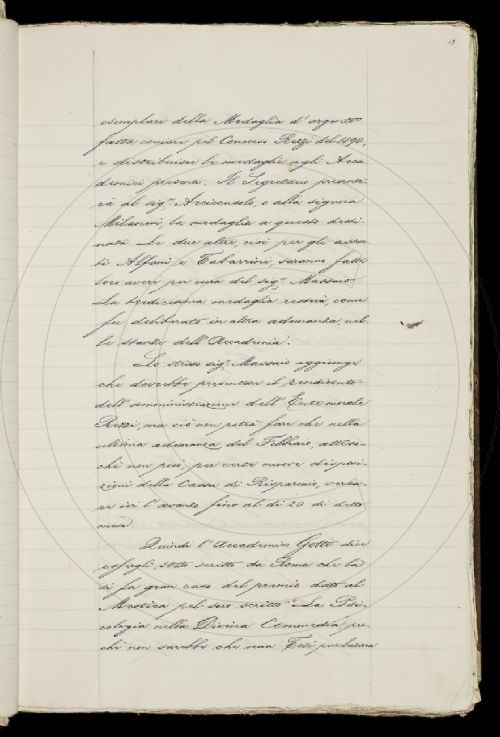 esemplari della Medaglia d'argento
fatta coniare pel Concorso Rezzi del 1890,
e distribuisce le medaglie agli Acca-
demici presenti. Il Segretario presente-
rà al sig.r Arciconsolo, e alla signora
Milanesi, la medaglia a questo desti-
nata. Le due altre, cioè per gli assen-
ti Alfani e Tabarrini, saranno fatte
loro avere per cura del sig.r Massaio.
La tredicesima medaglia resterà, come
fu deliberato in altra adunanza, nel-
le stanze dell'Accademia.
Lo stesso sig.r Massaio aggiunge
che dovrebbe presentare il rendiconto
dell'amministrazione dell'Ente morale
Rezzi, ma ciò non potrà fare che nella
ultima adunanza del Febbraio, atteso-
chè non può, per certe nuove disposi-
zioni della Cassa di Risparmio, versa-
re ivi l'avanzo fino al dì 20 di detto
mese.
Quindi l'Accademico Gotti dice
essergli stato scritto da Roma che là
si fa gran caso del premio dato al
Mestica pel suo scritto "La Psi-
cologia nella Divina Commedia", per-
chè non sarebbe che una Tesi per laurea